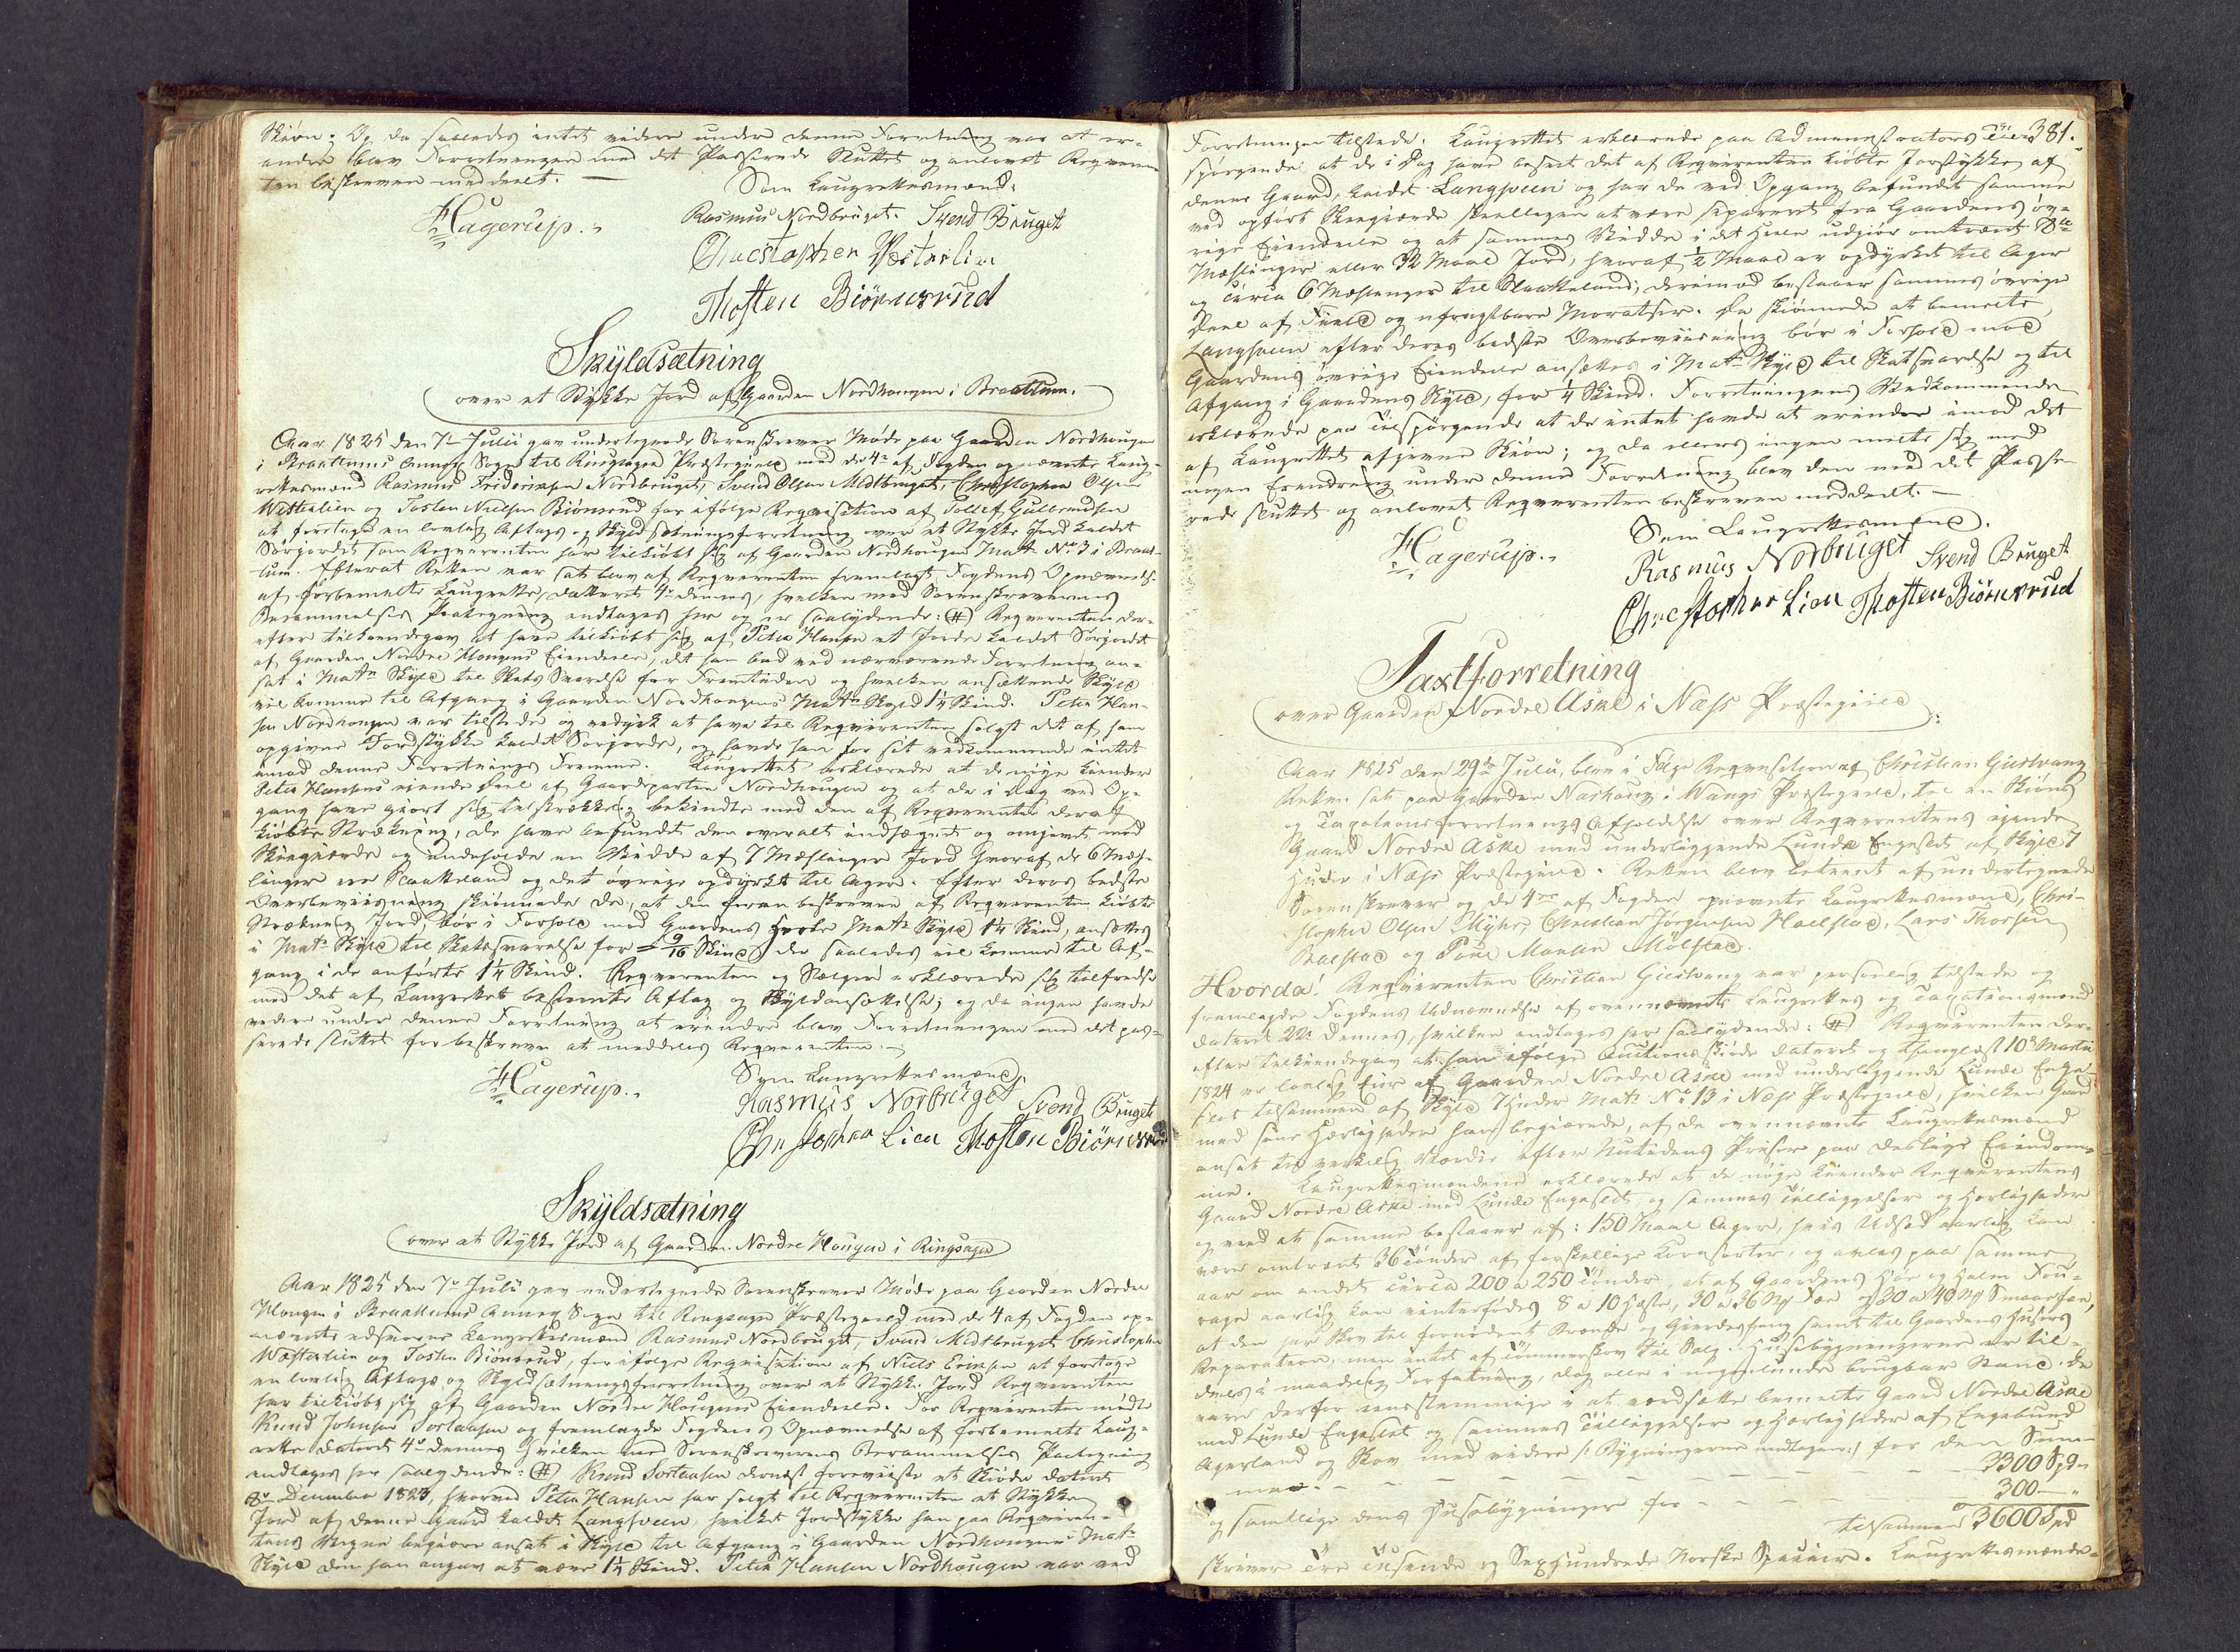 Skiøn. Og da saaledes intet videre under denne Forretning var at er-
indre blev Forretningen med det Passerede Sluttet og anlovet Reqviren-
ten beskreven meddeelt. —
Som Laugrettesmænd:
Hagerup.
Rasmus Nordbruget. Svend Bruget
Christopher
Thosten Biörnerud
Skyldsætning
over et Stykke Jord af Gaarden Nordhougen i Braattum.
Aar 1825 den 7de Julii gav undertegnede Sorenskriver Møde paa Gaarden Nordhougen
i Braattums Annex Sogn til Ringsager Præstegield med de 4re af Fogden opnævnte Laug-
rettesmænd Rasmus Nordbruget, Svend Olsen Midtbruget, Christopher Olsen
og Tosten Nielsen Biörnerud for ifølge Reqvisition af Tollef Gulbrandsen
at foretage en lovlig Aflags- og Skyldsætningsforretning over et Stykke Jord kaldet
Sørjordet som Reqvirenten har tilkiøbt sig af Gaarden Nordhougen Matr. No. 3 i Braat-
tum. Efterat Retten var sat blev af Reqvirenten fremlagt Fogdens Opnævnelse
af forbemeldte Laugrette, dateret 4de dennes, hvilken med Sorenskriverens
Berammelses Paategning indtages her og er saalydende: (#) Reqvirenten der-
efter tilkiendegav at have tilkiøbt sig af Peter Hansen et Jorde kaldet Sørjordet
af Gaarden Nordre Hougens Eiendeele, det han bad ved nærværende Forretning an-
sat i Matr. Skyld til Skats Svarelse for Fremtiden og hvilken ansættende Skyld
vil komme til Afgang i Gaarden Nordhougens Matr. Skyld 1¼ Skind. Peter Han-
sen Nordhougen var tilstede og vedgik at have til Reqvirenten solgt det af ham
opgivne Jordstykke kaldet Sørjorde, og havde han for sit vedkommende intet
imod denne Forretnings Fremme. Laugrettet erklærede at de nøye kiender
Peter Hansens eiende Deel af Gaardparten Nordhougen og at de i Dag ved Op-
gang have giort sig tilstrækkelig bekiendte med den af Reqvirenten deraf
kiøbte Strækning, de have befundet den overalt indhægnet og omgivet med
Skiegierde og indeholde en Vidde af 7 Mæhlinger Jord hvoraf de 6 Mæh-
linger er Slaatteland og det øvrige opdyrket til Ager. Efter deres bedste
Overbeviisning skiønnede de, at den foran beskrevne af Reqvirenten kiøbte
Strækning Jord, bør i Forhold med Gaardens Matr. Skyld 1¼ Skind, ansættes
i Matr. Skyld til Skatsvarelse for 9/16 Skind der saaledes vil komme til Af-
gang i de anførte 1¼ Skind. Reqvirenten og Sælgeren erklærede sig tilfredse
med det af Laugrettet bestemte Aflag og Skyldansættelse; og da ingen havde
videre under denne Forretning at erindre blev Forretningen med det pas-
serede sluttet for beskreven at meddeles Reqvirenten. —
Som Laugrettesmænd,
Hagerup.
Rasmus Norbruget Svend Bruget
Christopher Lien Thosten Biörnerud
Skyldsætning
over et Stykke Jord af Gaarden Nordre Hougen i Ringsager
Aar 1825 den 7de Julii gav undertegnede Sorenskriver Møde paa Gaarden Nordre
Hougen i Braattums Annex Sogn til Ringsager Præstegield med de 4 af Fogden op-
nævnte edsvorne Laugrettesmænd Rasmus Nordbruget, Svend Midtbruget Christopher
og Tosten Biörnerud, for ifølge Reqvisition af Niels at foretage
en lovlig Aflags og Skyldsætningsforretning over et Stykke Jord Reqvirenten
har tilkiøbt sig af Gaarden Nordre Hougens Eiendeele. For Reqvirenten mødte
Knud Johnsen og fremlagde Fogdens Opnævnelse af forbemelte Laug-
rette dateret 4de dennes hvilken med Sorenskriverens Berammelses Paategning
indtages her saalydende: (#) Knud dernæst foreviiste et Skiøde dateret
8de December 1823, hvorved Peter Hansen har solgt til Reqvirenten et Stykke
Jord af denne Gaard kaldet Langsveen, hvilket Jordstykke han paa Reqviren-
tens Vegne begiærede ansat i Skyld til Afgang i Gaarden Nordhougens Matr.
Skyld den han angav at være 1¼ Skind. Peter Hansen Nordhougen var ved
381.
Forretningen tilstede. Laugrettet erklærede paa Administrators Til-
spørgende at de i Dag have beseet det af Reqvirenten kiøbte Jorstykke af
denne Gaard, kaldet Langsveen og har de ved Opgang befundet samme
ved opført Skiegierde skiellegen at være separeret fra Gaardens øv-
rige Eiendeele og at sammes Vidde i det Hele udgiør omtrent 8te
Mæhlinger eller 32 Maal Jord, hvoraf ½ Maal er opdyrket til Ager
og circa 6 Mæhlinger til Slaatteland; derimod bestaaer sammes øvrige
Deel af Field og ufrugtbare Moratser. De skiønnede at bemelte
Langsveen efter deres bedste Overbeviisning bør i Forhold mod
Gaardens øvrige Eiendeele ansættes i Matr. Skyld til Skatsvarelse og til
Afgang i Gaardens Skyld, for ¼ Skind. Forretningens Vedkommende
erklærede paa Tilspørgende at de intet havde at erindre imod det
af Laugrettet afgivne Skiøn; og da ellers ingen meldte sig med
nogen Erindring under denne Forretning blev den med det Passe-
rede sluttet og anlovet Reqvirenten beskreven meddeelt. —
Som Laugrettesmænd.
Hagerup.
Rasmus Norbruget Svend Bruget
Christopher Lien Thosten Biörnerud
Taxtforretning
over Gaarden Nordre Aske i Næss Præstegield
Aar 1825 den 29de Julii, blev i Følge Reqvisition af Christian Giestvang
Retten sat paa Gaarden i Wangs Præstegield, til en Skiøns
og Taxationsforretnings Afholdelse over Reqvirentens eiende
Gaard Nordre Aske med underliggende Lunde Engeslet af Skyld 7
Huder i Næss Præstegield. Retten blev betient af undertegnede
Sorenskriver og de 4re af Fogden opnævnte Laugrettesmænd, Chri-
stopher Olsen Myhre, Christian Jørgensen Hoelstad, Lars Thorsen
Balstad og Poul Monsen Mølstad.
Hvorda! Reqvirenten Christian Giestvang var personlig tilstede og
fremlagde Fogdens Udnævnelse af ovennævnte Laugrettes og Taxationsmænd
dateret 22de dennes, hvilken indtages her saalydende: (#) Reqvirenten der-
efter tilkiendegav at han ifølge Auctions skiøde dateret og thinglæst 10de Martii
1824 er lovlig Eier af Gaarden Nordre Aske med underliggende Lunde Enge-
slet tilsammen af Skyld 7 Huder Matr. No. 13 i Næss Præstegield, hvilken Gaard
med sine Herligheder han begiærede, af de ovennævnte Laugrettesmænd
ansat til verkelig Værdie efter Nutidens Priser paa deslige Eiendom-
me. Laugrettesmændene erklærede at de nøye kiender Reqvirentens
Gaard Nordre Aske med Lunde Engeslet og sammes Tilliggelser og Herligheder
og veed at samme bestaaer af: 150 Maal Ager, hvis Udsæd aarlig kan
være omtrent 36 Tønder af forskiellige Kornsorter, og avles paa samme
aar om andet circa 200 a 250 Tønder, at af Gaardens Høe og Halm Fou-
rage aarlig kan vinterfødes 8 a 10 Heste, 30 a 36 Nd Fæe og 30 a 40 Nd Smaafæe,
at den har Skov til fornødent Brænde og Gierdesfang samt til Gaardens Huses
Reparation, men intet af Tømmerskov til Salg. Husebygningerne er til-
deels i maadelig Forfatning, dog alle i nogenlunde brugbar Stand. De
vare derfor eenstemmige i at værdsætte bemelte Gaard Nordre Aske
med Lunde Engeslet og sammes Tilliggelser og Herligheder af Engebund
Agerland og Skov med videre /: Bygningerne undtagen:/ for den Sum-
ma. — — — — — — — 3300 Spd.
og samtlige dens Husebygninger for — — — — — 300 —
tilsammen 3600 Spd
skriver Tre Tusende og Sexhundrede Norske Specier. Laugrettesmænde-